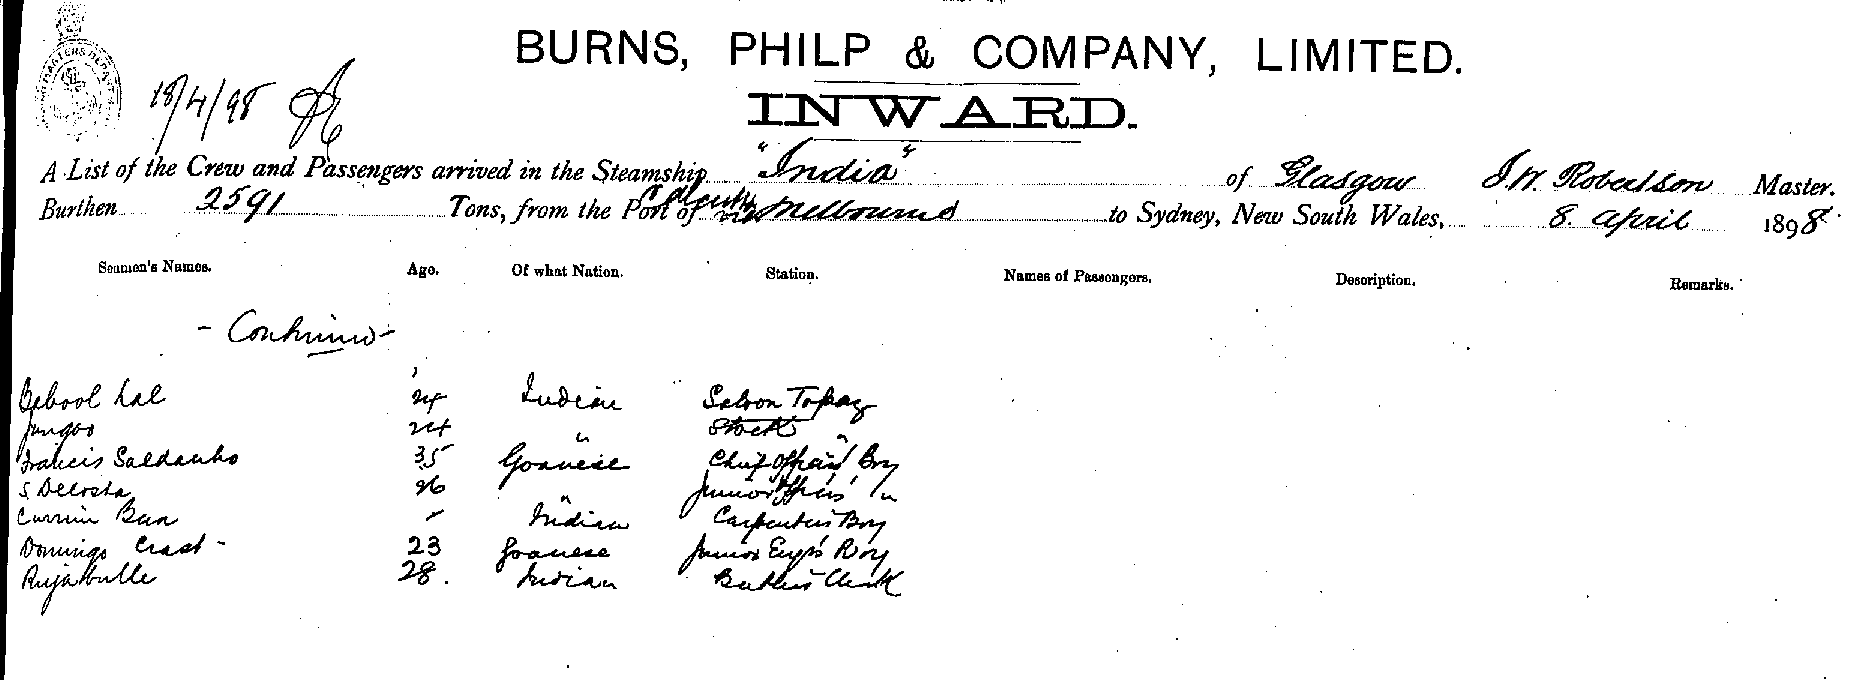 BURNS, PHILP & COMPANY, LIMITED.
INWARD.
18/4/98
A List of the Crew and Passengers arrived in the Steamship "India" of Glasgow J. W. Robertson Master.
Burthen 2591 Tons, from the Port of Calcutta via Melbourne to Sydney, New South Wales, 8. April 1898.
Seamen's Names. Age. Of what Nation. Station. Names of Passengers. Description. Remarks.
- Continued -
Lal 24 Indian Saloon Topaz
Jungoo 24 " Stock "
Francis Saldanho 35 Goanese Chief Officers' Boy
S Decosta 26 " Junior Officers' "
Currim Bux - Indian Carpenters Boy
Domingo Crast - 23 Goanese Junior Engrs Boy
28. Indian Butlers Clerk